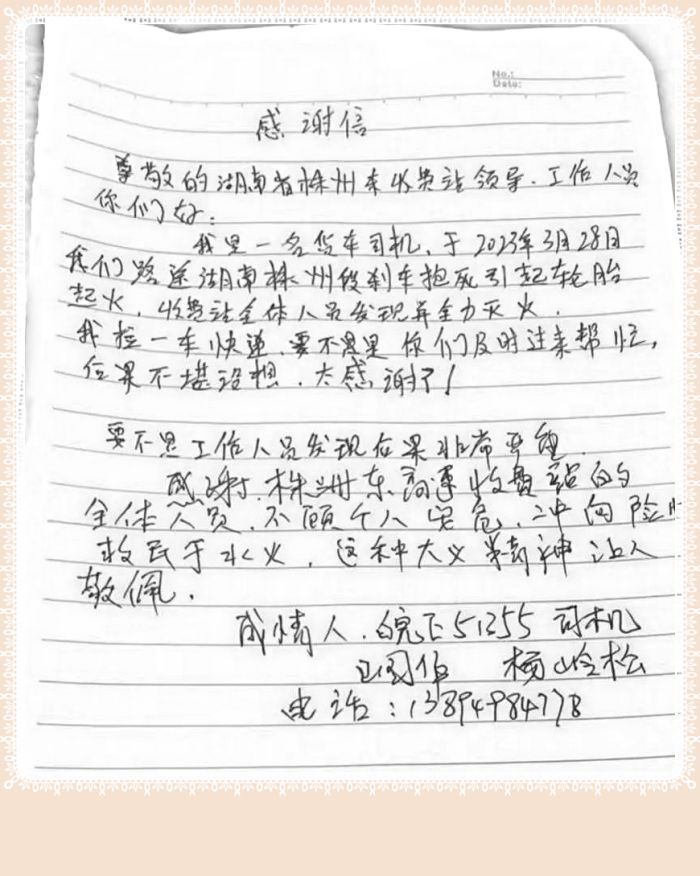 No.:
Date:
感谢信
尊敬的湖南省株州东收费站领导、工作人员
你们好：
我是一名货车司机，于2023年3月28日
我们路途湖南株州段刹车抱死引起轮胎
起火，收费站全体人员发现并全力灭火.
我拉一车快递，要不是是你们及时过来帮忙，
后果不堪设想，太感谢了！
要不是工作人员发现后果非常严重.
感谢，株洲东高速收费站的
全体人员，不顾个人安危，冲向险
救民于水火，这种大义 精神让人
敬佩.
感情人.皖 51355 司机
杨 松
电话：13894984778